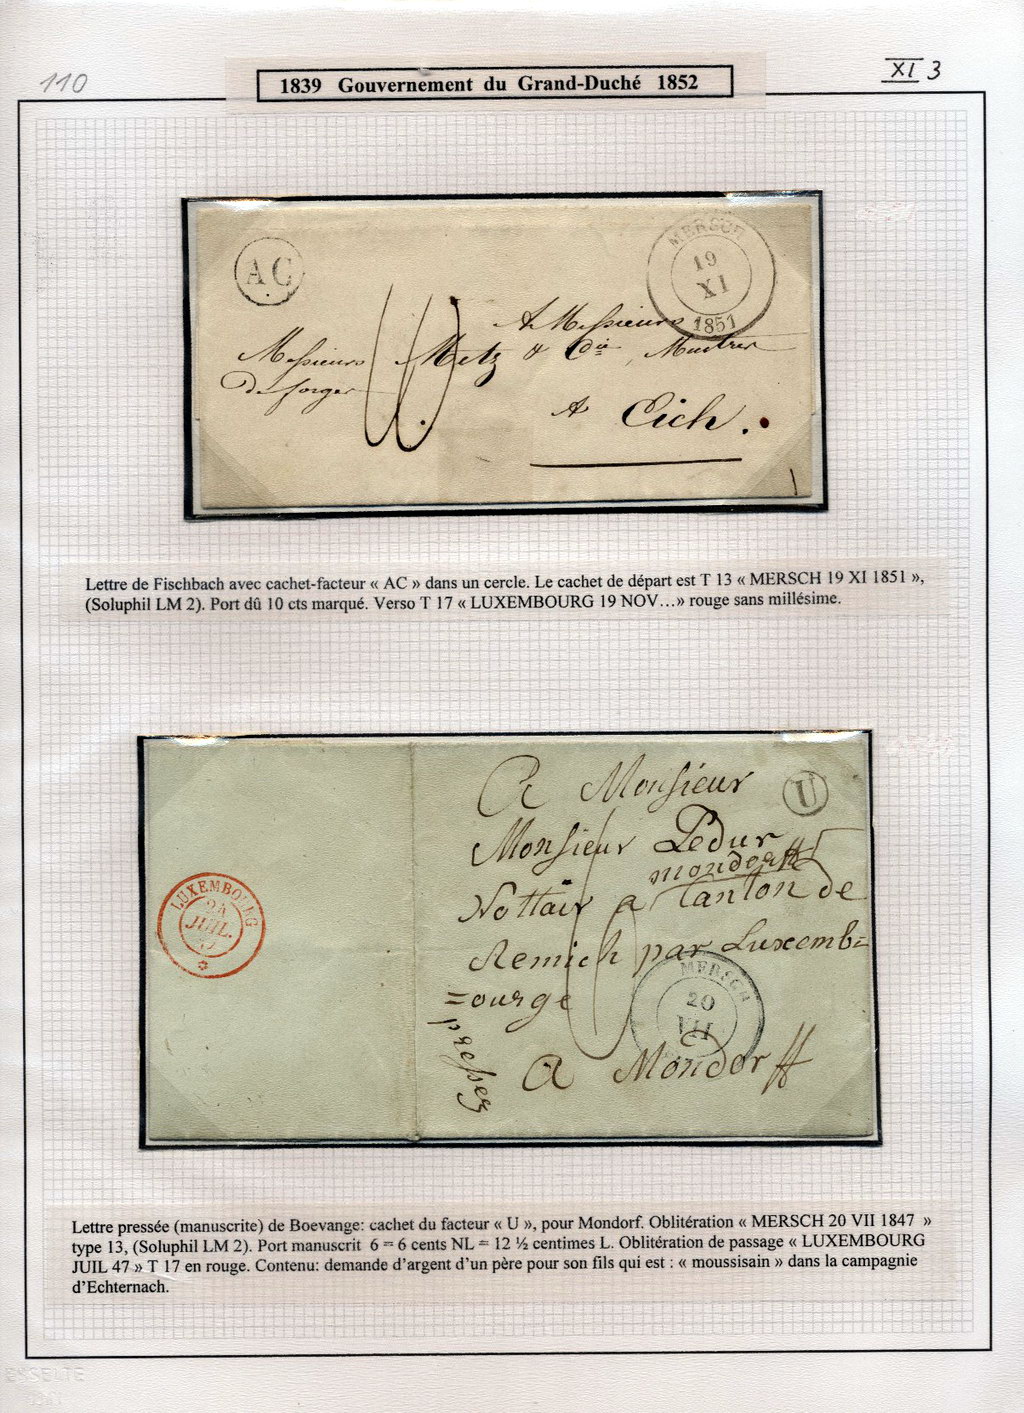 110
1839 Gouvernement du Grand-Duché 1852
XI 3
AC
MERSCH
19
XI
1851
A Messieurs
Messieurs Metz & Cie, Maitres
De forges
A Eich.
Lettre de Fischbach avec cachet-facteur « AC » dans un cercle. Le cachet de départ est T 13 « MERSCH 19 XI 1851 »,
(Soluphil LM 2). Port dû 10 cts marqué. Verso T 17 « LUXEMBOURG 19 NOV…» rouge sans millésime.
A Monsieur
U
Monsieur Ledur
mondorff
Nottair a Canton de
Remich par Luxemb=
=ourge
pressez
a Mondorff
LUXEMBOURG
24
JUIL.
47
MERSCH
20
VII
6
Lettre pressée (manuscrite) de Boevange: cachet du facteur « U », pour Mondorf. Oblitération « MERSCH 20 VII 1847 »
type 13, (Soluphil LM 2). Port manuscrit 6 = 6 cents NL = 12 ½ centimes L. Oblitération de passage « LUXEMBOURG
JUIL 47 » T 17 en rouge. Contenu: demande d’argent d’un père pour son fils qui est : « moussisain » dans la campagnie
d’Echternach.
ESSELTE